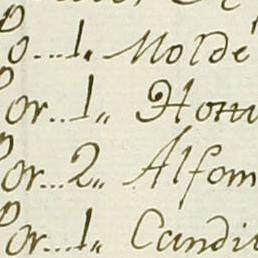 o...1,, Molde
or. 1,, Hom
or...2,, Alfom
or...1,, Candi